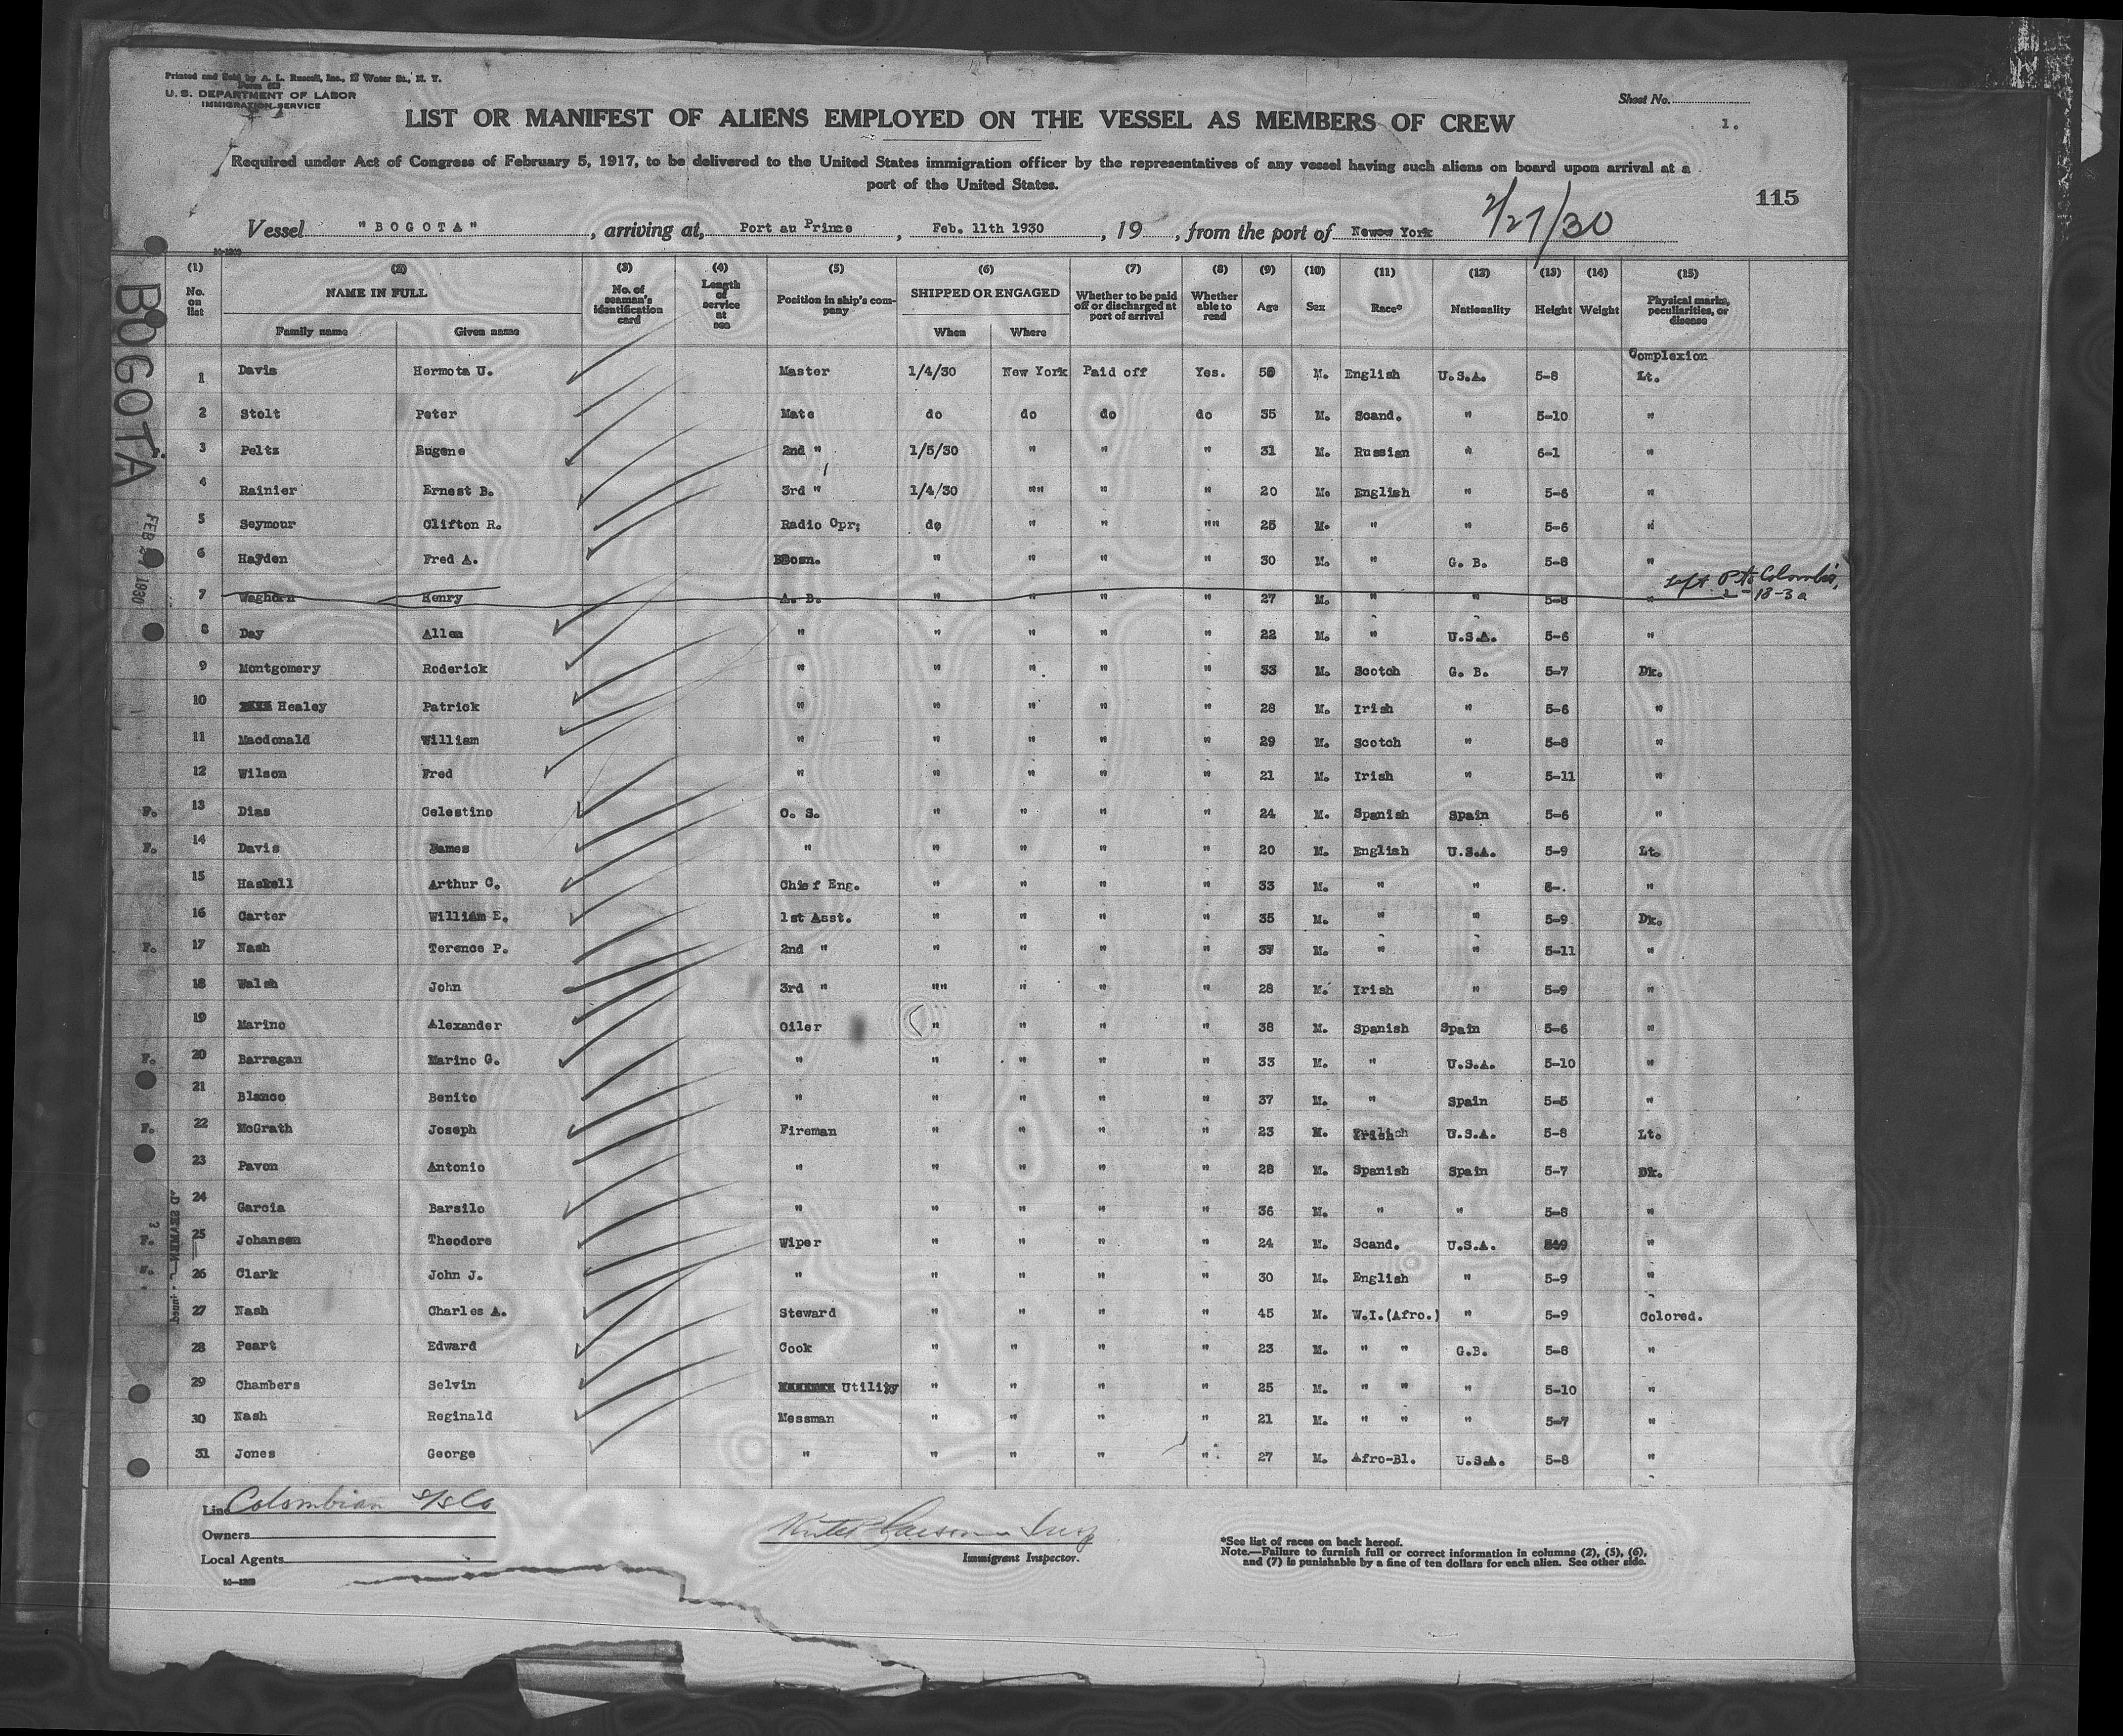 Printed and Sold by A. L. Russell, Inc., Water St., N. Y.
U. S. DEPARTMENT OF LABOR
IMMIGRATION SERVICE
Sheet No.
1.
LIST OR MANIFEST OF ALIENS EMPLOYED ON THE VESSEL AS MEMBERS OF CREW
Required under Act of Congress of February 5, 1917, to be delivered to the United States immigration officer by the representatives of any vessel having such aliens on board upon arrival at a
port of the United States.
115
2/27/30
Vessel "BOGOTA", arriving at, Port au Prince, Feb. 11th 1930, 19, from the port of York
BOGOTA
FEB 1930
(1) (2) (3) (4) (5) (6) (7) (8) (9) (10) (11) (12) (13) (14) (15)
No. on list NAME IN FULL Family name Given name No. of seaman's identification card Length of service at sea Position in ship's company SHIPPED OR ENGAGED When Where Whether to be paid off or discharged at port of arrival Whether able to read Age Sex Race* Nationality Height Weight Physical marks, peculiarities, or disease
Complexion
1 Davis Hermota U. Master 1/4/30 New York Paid off Yes. M. English U.S.A. 5-8 Lt.
2 Stolt Peter Mate do do do do 35 M. Scand. " 5-10 "
3 Peltz Eugene 2nd " 1/5/30 " " " 31 M. Russian " 6-1 "
4 Rainier Ernest B. 3rd " 1/4/30 "" " " 20 M. English " 5-6 "
5 Seymour Clifton R. Radio Opr; do " " "" 25 M. " " 5-6 "
6 Hayden Fred A. Bosn. " " " " 30 M. " G. B. 5-8 "
7 Waghorn Henry A. B. " " " " 27 M. " " 5-8 " Left Pto Colombia, 2-18-30
8 Day Allen " " " " " 22 M. " U.S.A. 5-6 "
9 Montgomery Roderick " " " " " 33 M. Scotch G. B. 5-7 Dk.
10 Healey Patrick " " " " " 28 M. Irish " 5-6 "
11 Macdonald William " " " " " 29 M. Scotch " 5-8 "
12 Wilson Fred " " " " " 21 M. Irish " 5-11 "
F. 13 Dias Celestino O. S. " " " " 24 M. Spanish Spain 5-6 "
F. 14 Davis " " " " " 20 M. English U.S.A. 5-9 Lt.
15 Haskell Arthur C. Chief Eng. " " " " 33 M. " " "
16 Carter William E. 1st Asst. " " " " 35 M. " " 5-9 Dk.
F. 17 Nash Terence P. 2nd " " " " " 37 M. " " 5-11 "
18 Walsh John 3rd " "" " " " 28 M. Irish " 5-9 "
19 Marino Alexander Oiler " " " " 38 M. Spanish Spain 5-6 "
F. 20 Barragan Marino G. " " " " " 33 M. " U.S.A. 5-10 "
21 Blanco Benito " " " " " 37 M. " Spain 5-5 "
F. 22 McGrath Joseph Fireman " " " " 23 M. U.S.A. 5-8 Lt.
23 Pavon Antonio " " " " " 28 M. Spanish Spain 5-7 Dk.
24 Garcia Barsilo " " " " " 36 M. " " 5-8 "
F. 25 Johansen Theodore Wiper " " " " 24 M. Scand. U.S.A. "
F. 26 Clark John J. " " " " " 30 M. English " 5-9 "
27 Nash Charles A. Steward " " " " 45 M. W.I.(Afro.) " 5-9 Colored.
28 Peart Edward Cook " " " " 23 M. " " G.B. 5-8 "
29 Chambers Selvin Utility " " " " 25 M. " " " 5-10 "
30 Nash Reginald Messman " " " " 21 M. " " " 5-7 "
31 Jones George " " " " " 27 M. Afro-Bl. U.S.A. 5-8 "
Line Colombian S/S Co
Owners
Local Agents
Immigrant Inspector.
*See list of races on back hereof.
Note.—Failure to furnish full or correct information in columns (2), (5), (6),
and (7) is punishable by a fine of ten dollars for each alien. See other side.